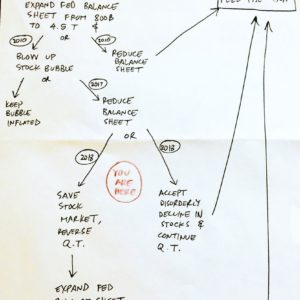 EXPAND FED BALANCE
SHEET FROM 800B
TO 4.5T &
OR
2010
BLOW UP
STOCK BUBBLE
REDUCE
BALANCE
SHEET
2017
KEEP
BUBBLE
INFLATED
REDUCE
BALANCE
SHEET
OR
2018
2018
YOU
ARE
HERE
SAVE
STOCK
MARKET,
REVERSE
Q.T.
ACCEPT
DISORDERLY
DECLINE IN
STOCKS &
CONTINUE
Q.T.
EXPAND FED